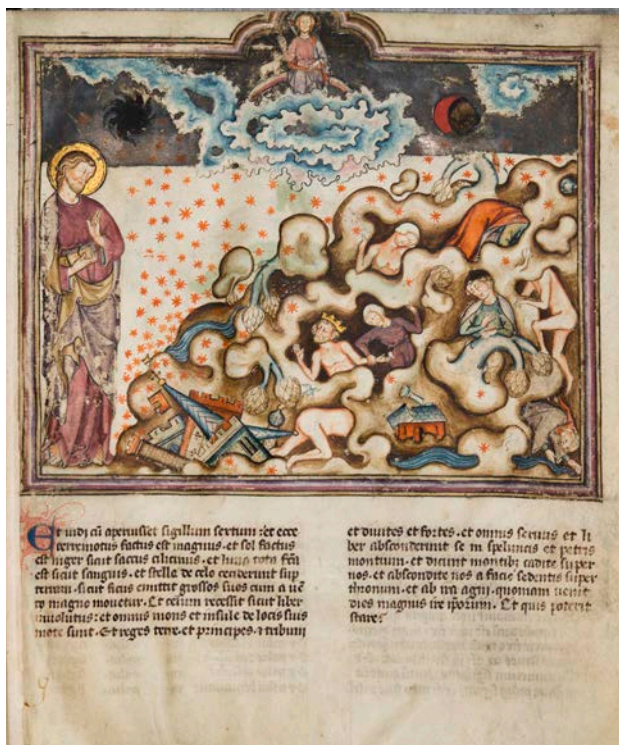 Et uidi cū aperuisset sigillum sextum: et ecce
terremotus factus est magnus. et sol factus
est niger sicut saccus cilicinus. et luna tota fcā
est sicut sanguis. et stelle de celo ceciderunt sup
terram. sicut ficus emittit grossos suos cum a uē
to magno mouetur. Et celum recessit sicut liber
inuolutus: et omnis mons et insule de locis suis
mote sunt. Et reges terre. et principes. et tribuni
et diuites et fortes. et omnis seruus et li
ber absconderunt se in speluncis et petris
montium. et dicunt montibꝫ cadite super
nos. et abscondite nos a facie sedentis super
thronum. et ab ira agni. quoniam uenit
dies magnus ire ipsorum. Et quis poterit
stare?